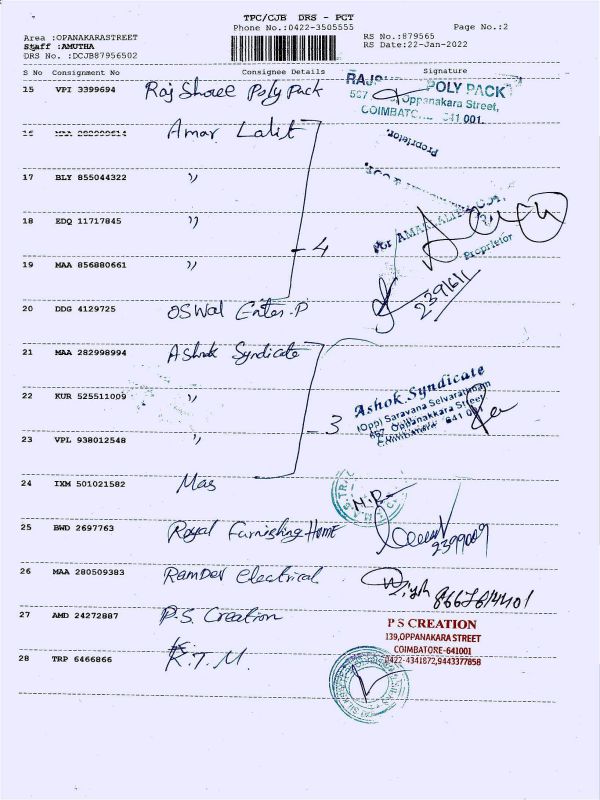 TPC/CJB DRS - PCT
Phone No.:0422-3505555
Page No.:2
Area :OPANAKARASTREET
Staff :AMUTHA
DRS No. :DCJB87956502
RS No.:879565
RS Date:22-Jan-2022
S No Consignment No Consignee Details Signature
15 VPI 3399694 Raj Shree Poly Pack
POLY PACK
Oppanakara Street,
COIMBATO 641 001.
16 Amar Lalit
Proprietor.
17 BLY 855044322 〃
18 EDQ 11717845 〃
For AMAR LALIT & COY.
Proprietor
4
19 MAA 856880661 〃
2391611
20 DDG 4129725 Oswal Enter.P
21 MAA 282998994 Ashok Syndicate
Ashok Syndicate
(Opp) Saravana Selvarathnam
22 KUR 525511009 〃
567, Oppanakkara Street
Coimbatore 641 001
3
23 VPL 938012548 〃
24 IXM 501021582 Mas
25 BWD 2697763 Royal Furnishing Home
2399009
26 MAA 280509383 RamDev Electrical
27 AMD 24272887 P.S. Creation
P S CREATION
139,OPPANAKARA STREET
COIMBATORE-641001
0422-4341872,9443377858
28 TRP 6466866 K.T.M.